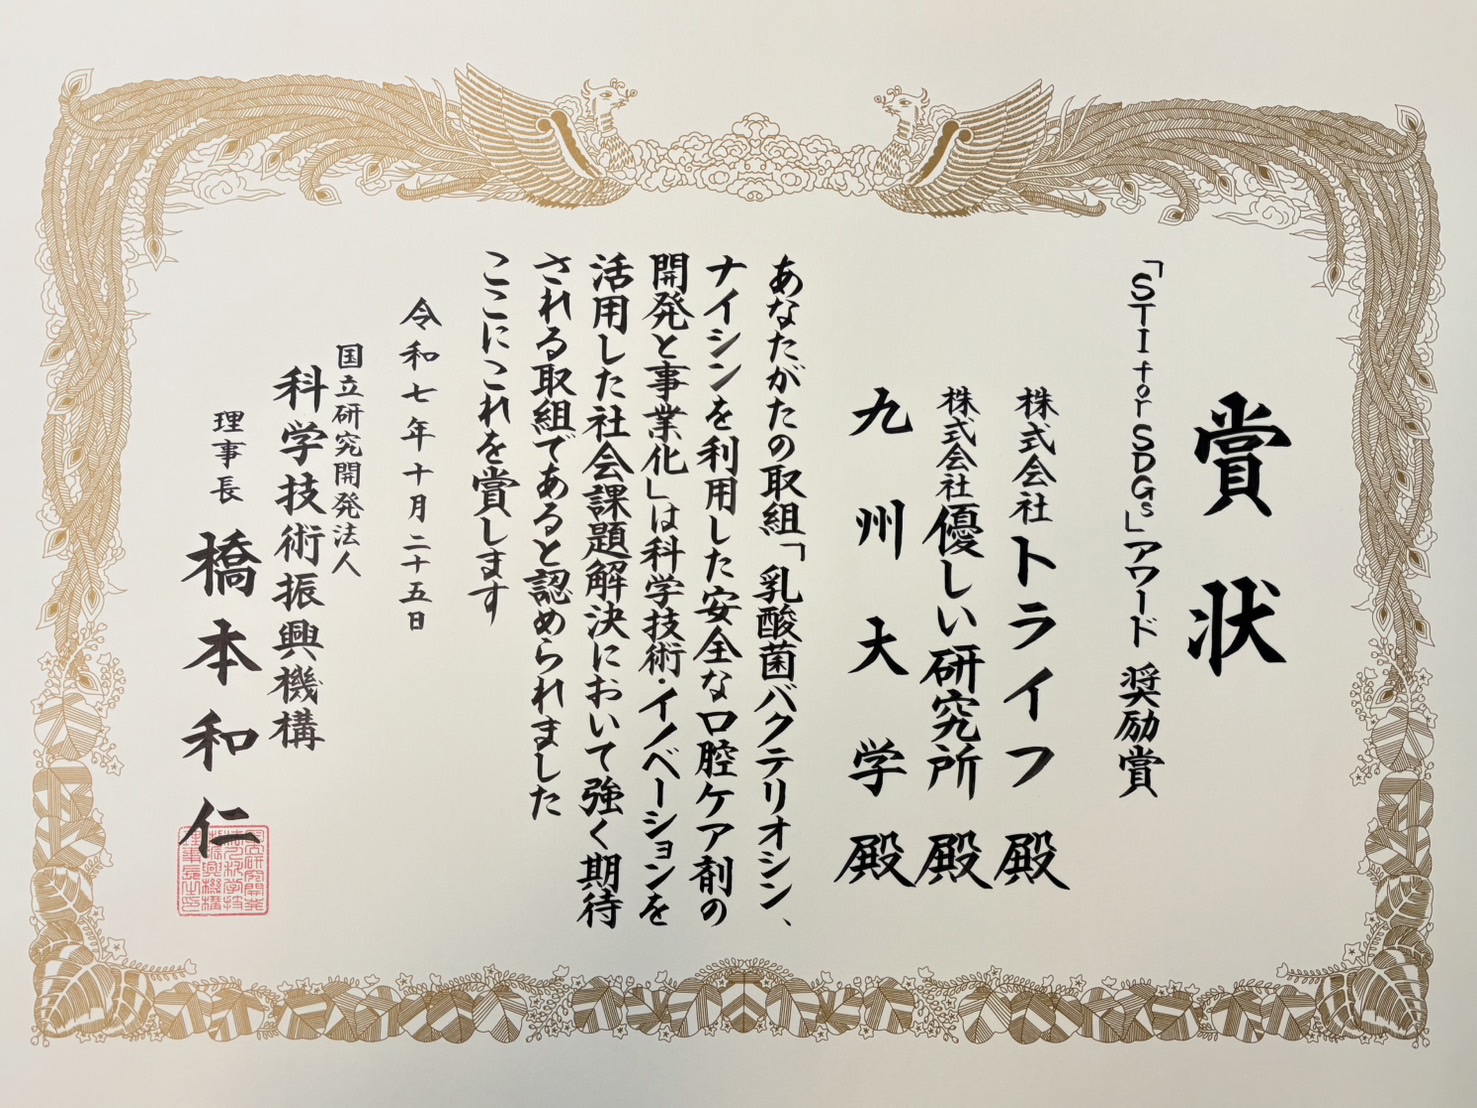 賞状
「STI for SDGs」アワード 奨励賞
株式会社トライフ 殿
株式会社優しい研究所 殿
九州大学 殿
あなたがたの取組「乳酸菌バクテリオシン、
ナイシンを利用した安全な口腔ケア剤の
開発と事業化」は科学技術・イノベーションを
活用した社会課題解決において強く期待
される取組であると認められました
ここにこれを賞します
令和七年十月二十五日
国立研究開発法人
科学技術振興機構
理事長 橋本和仁